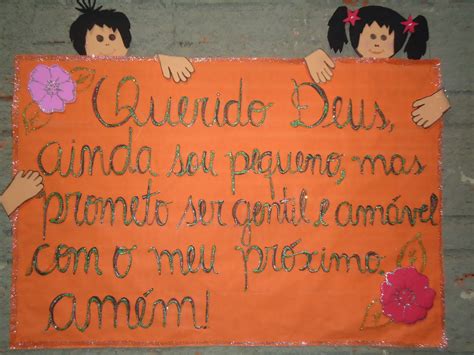 Querido Deus,
ainda sou pequeno, mas
prometo ser gentil e amável
com o meu próximo
amém!